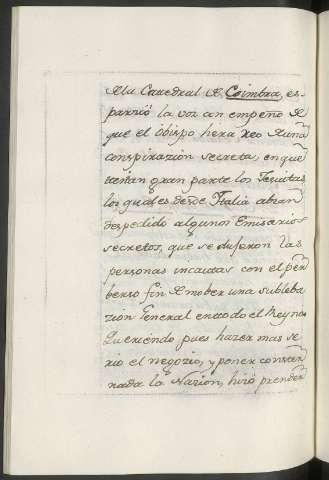 de la Catedral de Coimbra, es-
parció la voz con empeño de
que el Obispo hera Reo de una
conspirazion secreta, en que
tenian gran parte los Jesuitas
los quales desde Italia abian
despedido algunos Emisarios
secretos, que se
personas incautas con el per
berso fin de mober una subleba
zion General en todo el Reyno
Queriendo pues hazer mas se
rio el negozio, y poner conster
nada la Nazion, hizo prender